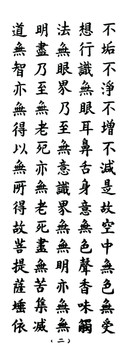 不垢不淨不增不減是故空中無色無受
想行識無眼耳鼻舌身意無色聲香味觸
法無眼界乃至無意識界無無明亦無無
明盡乃至無老死亦無老死盡無苦集滅
道無智亦無得以無所得故菩提薩埵依
(二)